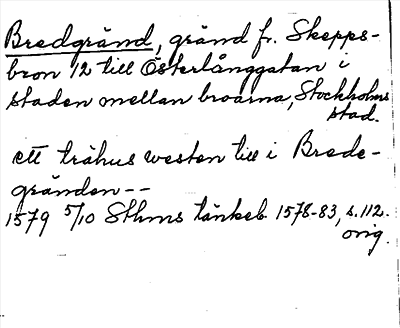 Bredgränd, gränd fr. Skepps-
bron 12 till Österlånggatan i
staden mellan broarna, Stockholms
stad.
ett trähus westen till i Brede-
gränden--
1579 5/10 Sthms tänkeb. 1578-83, s. 112.
orig.